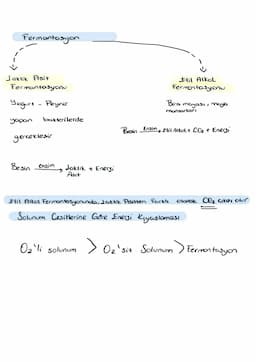 Fermantasyon
Laktik Asit
Fermantasyonu
Yoğurt - Peynir
yapan bakterilerde
gerçekleşir
Besin Enzim → Laktik + Enerji
Asit
Etil Alkol
Fermantasyonu
Bira mayası, maya
mantarları
Besin Enzim → Etil Alkol + CO2 + Enerji
Etil Alkol Fermantasyonunda, Laktik Asitten Farklı olarak CO2 çıkışı olur
Solunum Çeşitlerine Göre Enerji Kıyaslaması
O2'li solunum > O2'siz Solunum > Fermantasyon